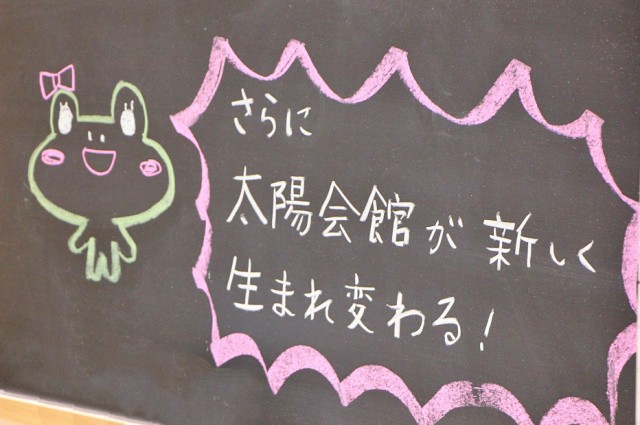 さらに
太陽会館が新しく
生まれ変わる!